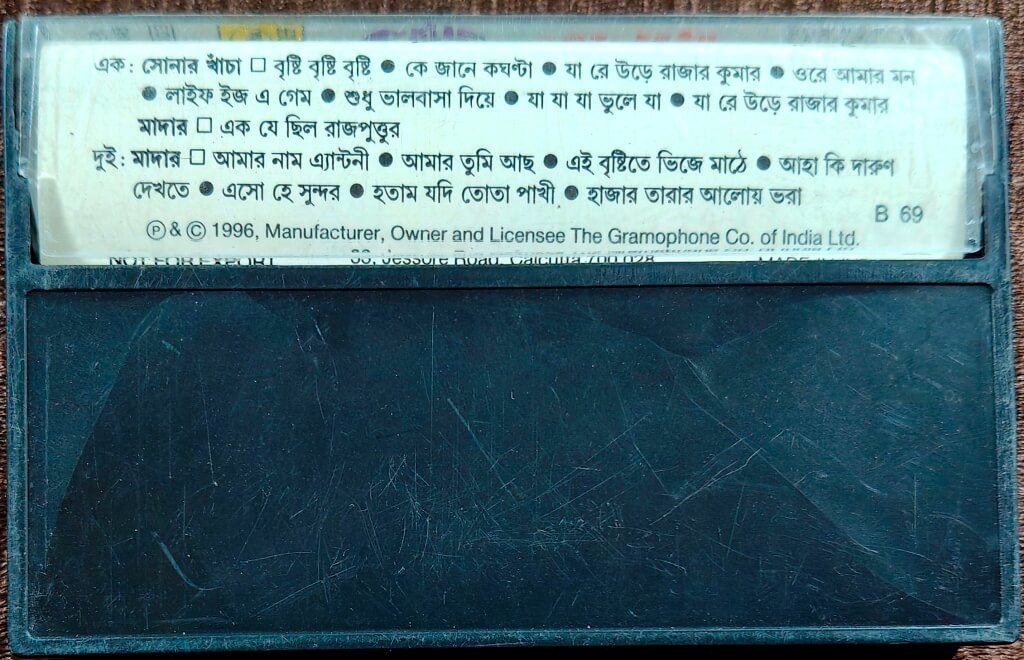 এক : সোনার খাঁচা □ বৃষ্টি বৃষ্টি বৃষ্টি ● কে জানে কঘণ্টা ● যা রে উড়ে রাজার কুমার ● ওরে আমার মন
● লাইফ ইজ এ গেম ● শুধু ভালবাসা দিয়ে ● যা যা যা ভুলে যা ● যা রে উড়ে রাজার কুমার
মাদার □ এক যে ছিল রাজপুত্তুর
দুই : মাদার □ আমার নাম এ্যান্টনী ● আমার তুমি আছ ● এই বৃষ্টিতে ভিজে মাঠে ● আহা কি দারুণ
দেখতে ● এসো হে সুন্দর ● হতাম যদি তোতা পাখী ● হাজার তারার আলোয় ভরা
B 69
Ⓟ & © 1996, Manufacturer, Owner and Licensee The Gramophone Co. of India Ltd.
NOT FOR EXPORT 33, Jessore Road, Calcutta 700 028